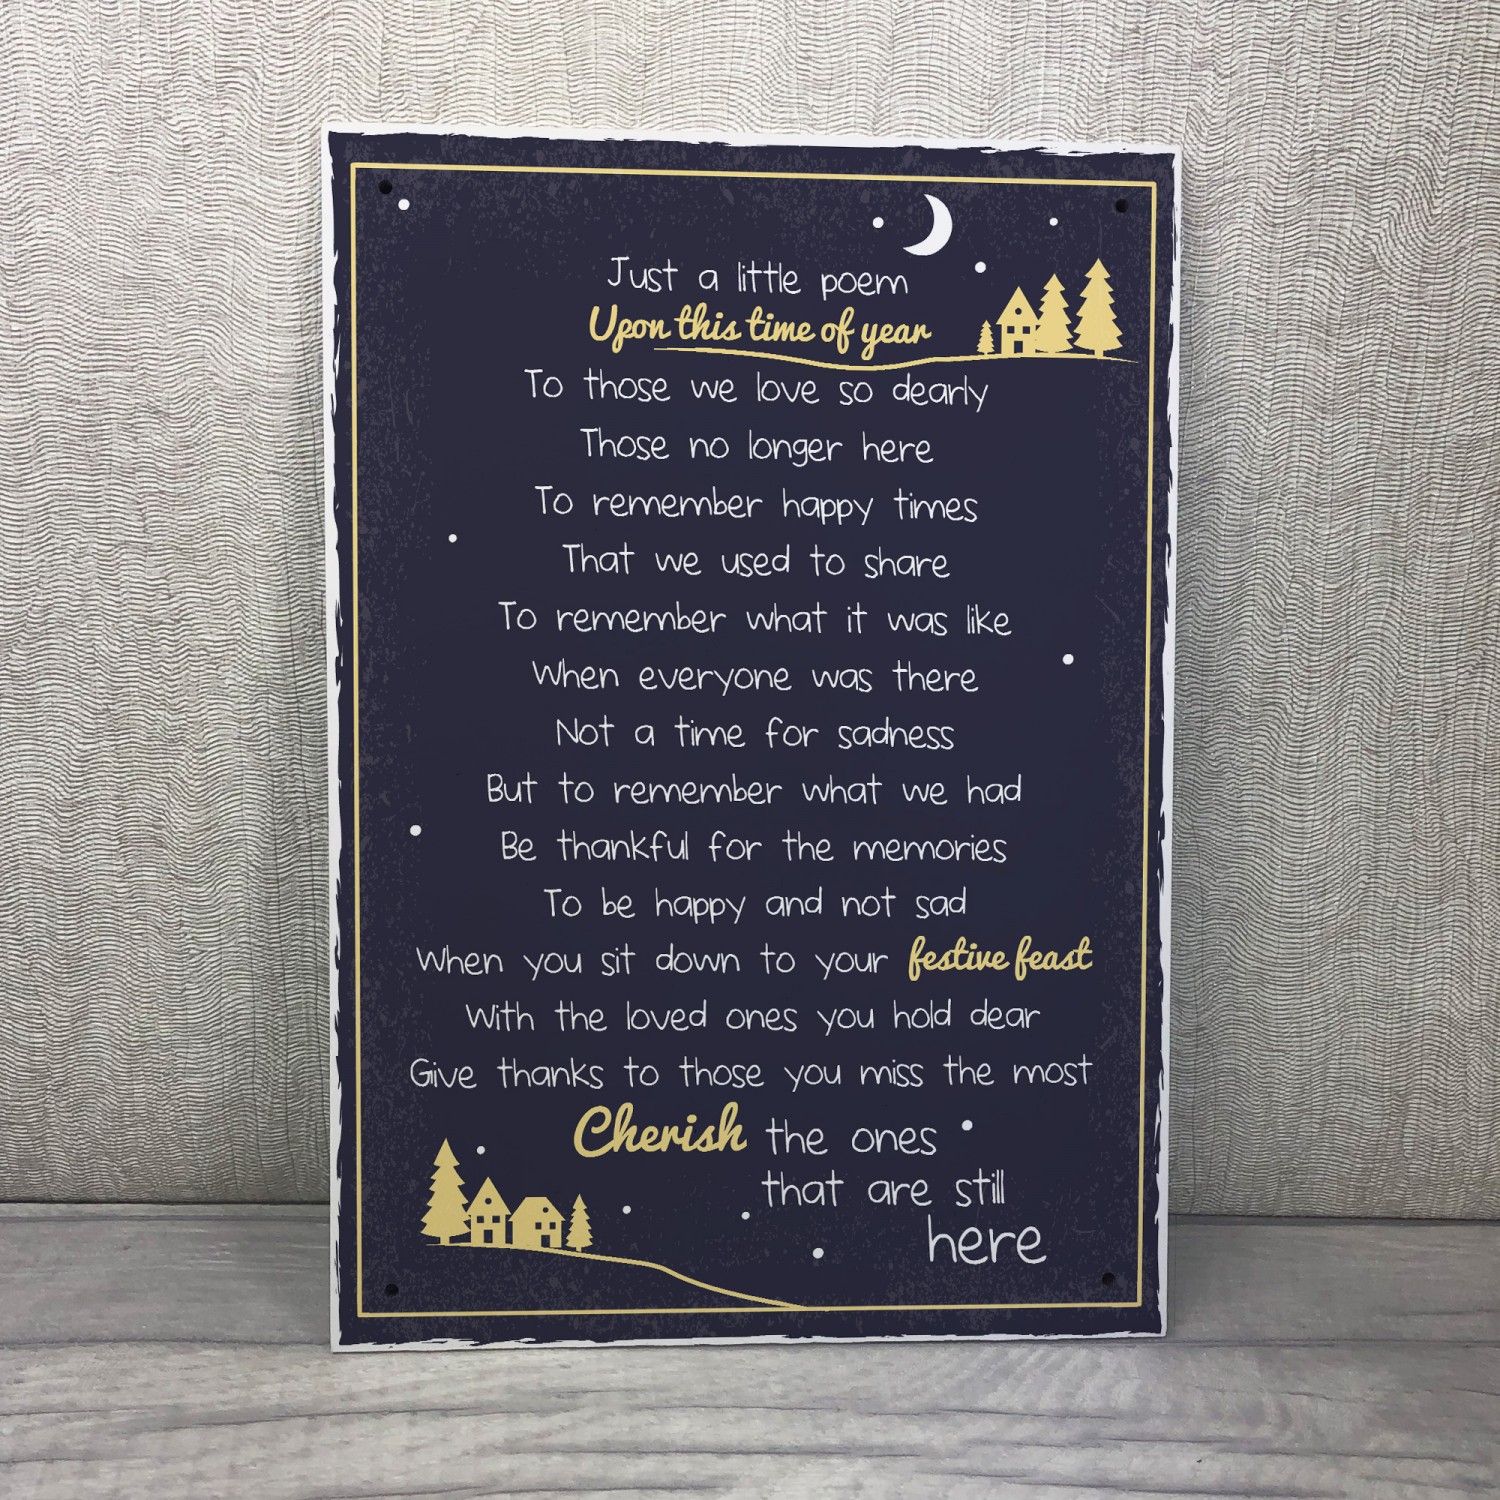 Just a little poem
Upon this time of year
To those we love so dearly
Those no longer here
To remember happy times
That we used to share
To remember what it was like
When everyone was there
Not a time for sadness
But to remember what we had
Be thankful for the memories
To be happy and not sad
When you sit down to your festive feast
With the loved ones you hold dear
Give thanks to those you miss the most
Cherish the ones
that are still
here